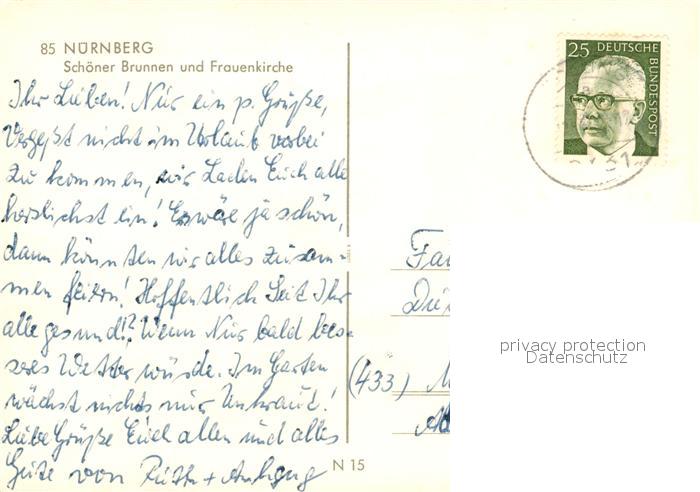 85 NÜRNBERG
Schöner Brunnen und Frauenkirche
Ihr Lieben! Nur ein p. Grüße,
Vergeßt nicht im Urlaub vorbei
zu kommen, wir Laden Euch alle
herzlichst ein! Es wäre ja schön,
dann könnten wir alles zusam-
men feiern! Hoffentlich Seit Ihr
alle gesund!? Wenn Nur bald bes-
seres Wetter würde. Im Garten
wächst nichts nur Unkraut!
Liebe Grüße Euch allen und alles
Gute von Ruth + Anhang
N 15
25 DEUTSCHE
BUNDESPOST
Fa
(433) M
privacy protection
Datenschutz